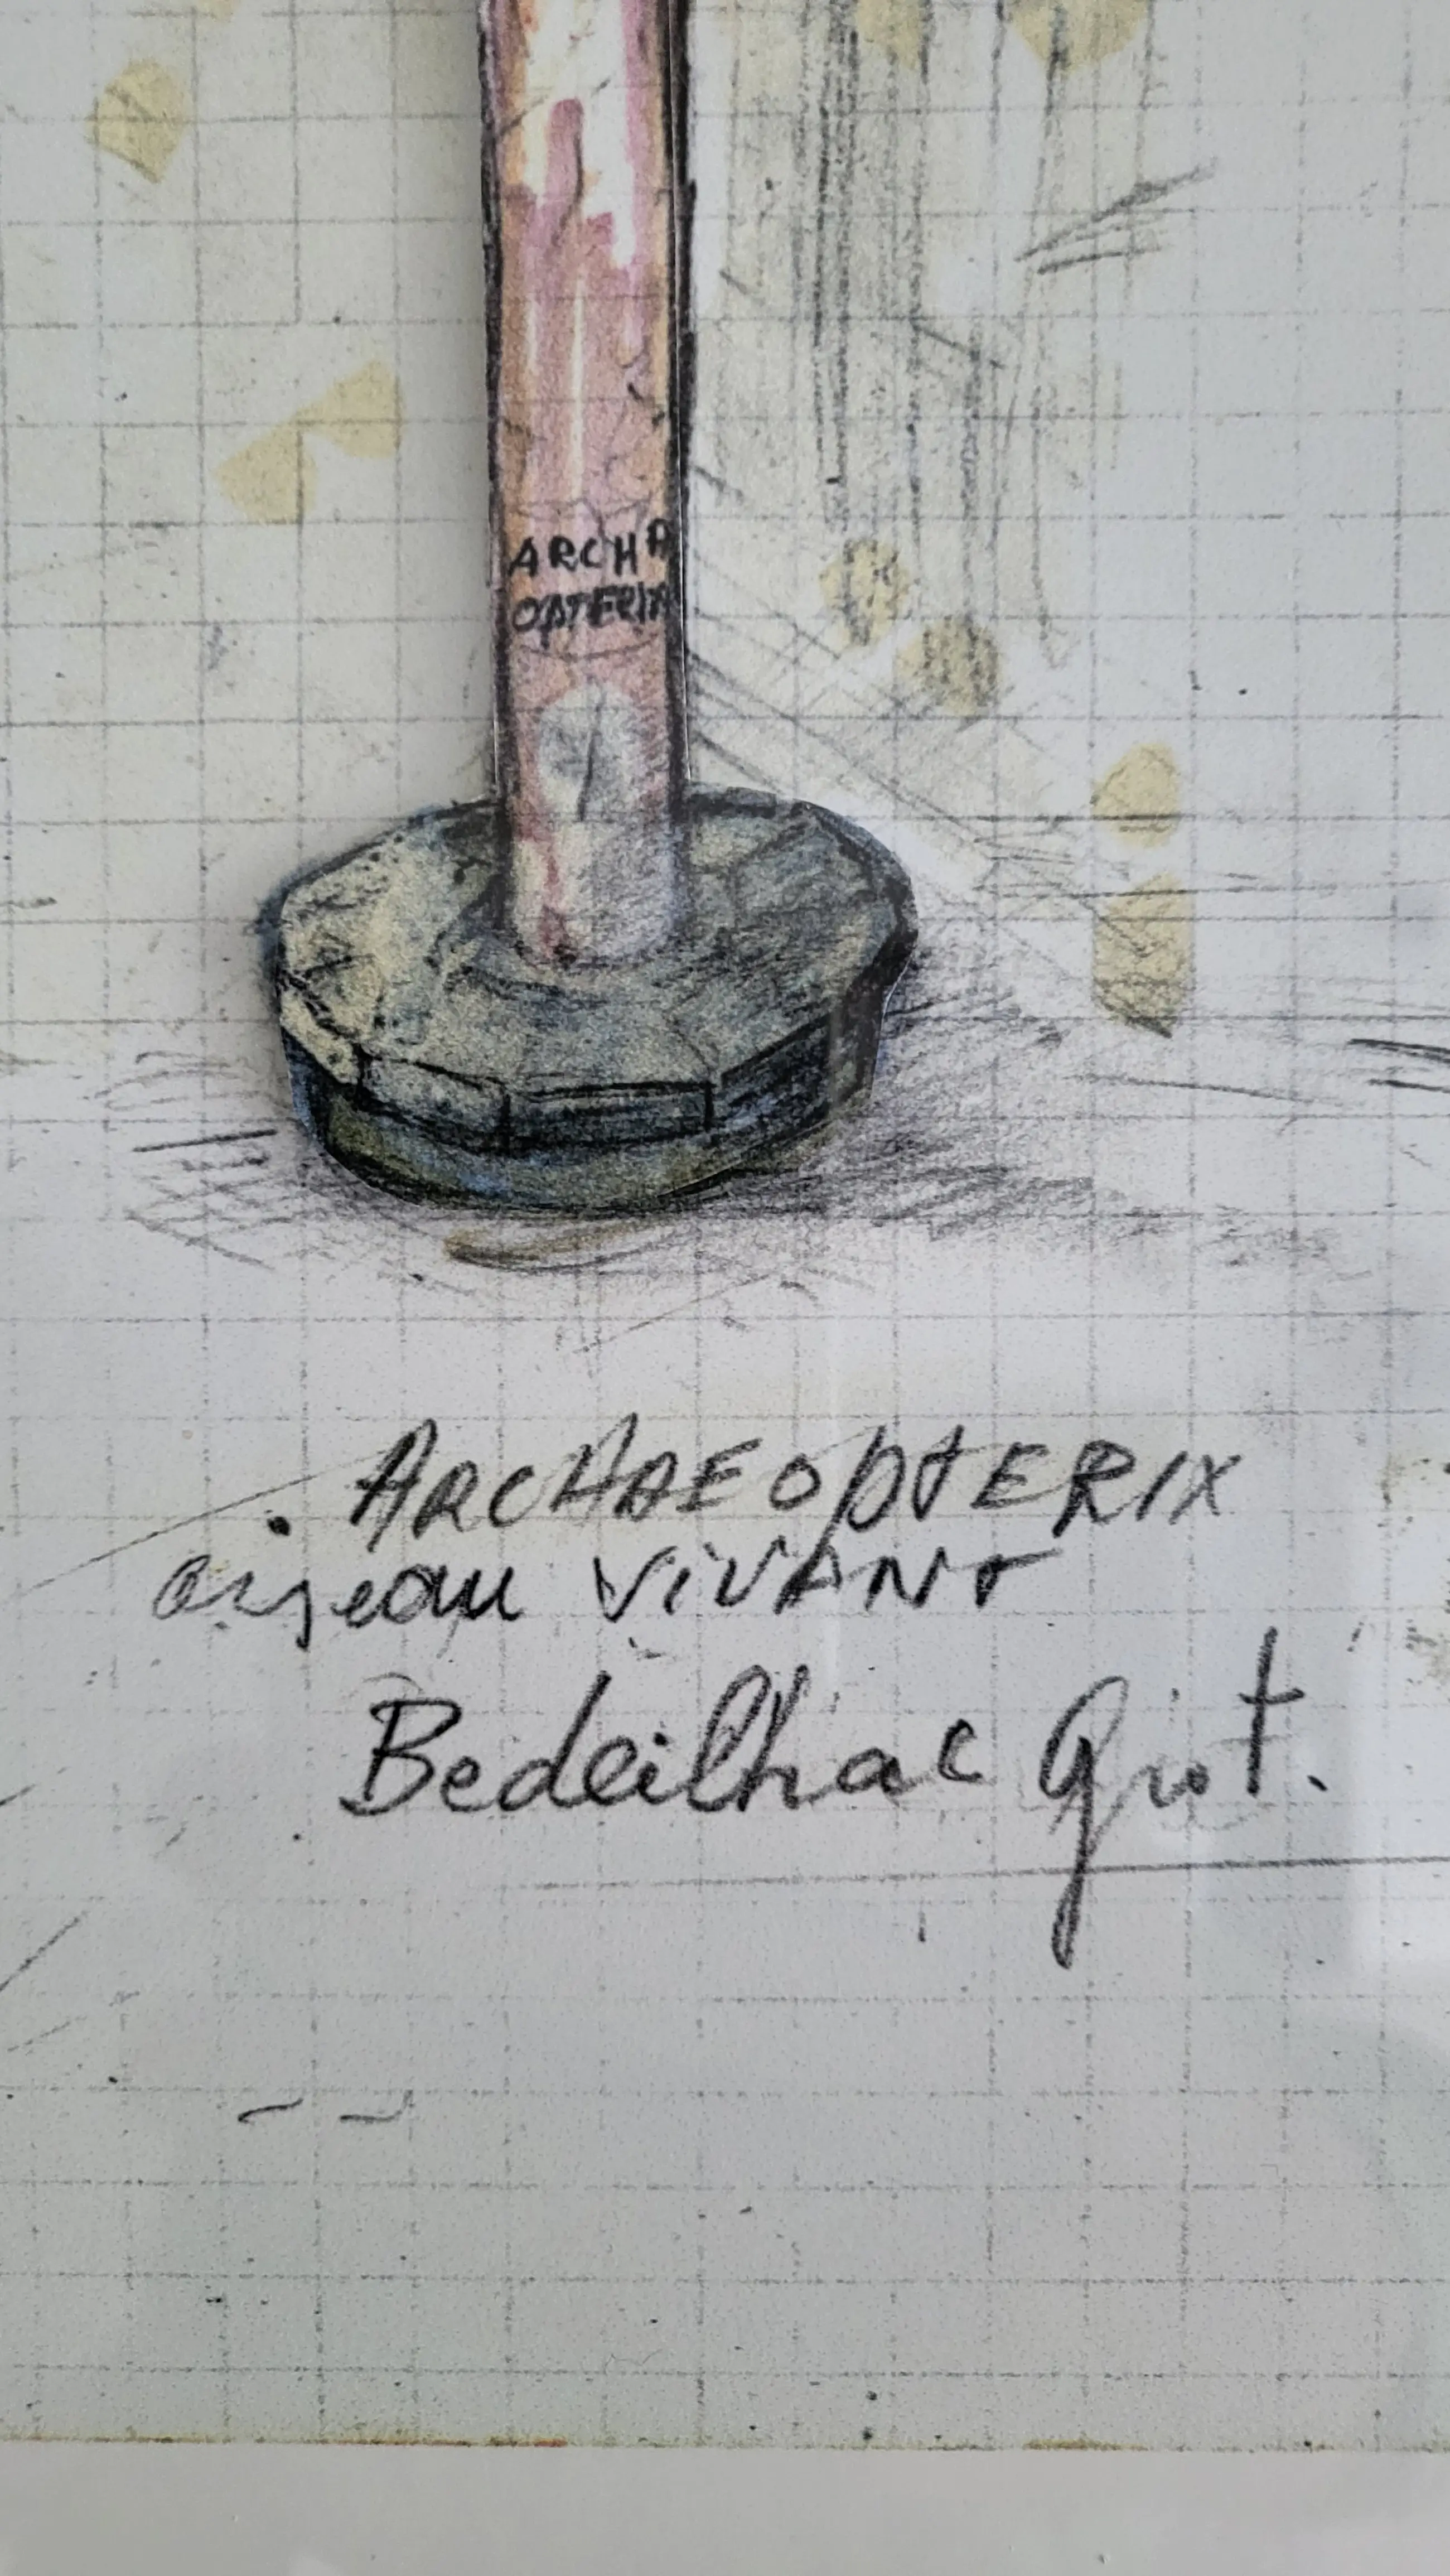 ARCHA
OPTERIX
. ARCHAEOPTERIX
oiseau VIVANT
Bedeilhac Grot.